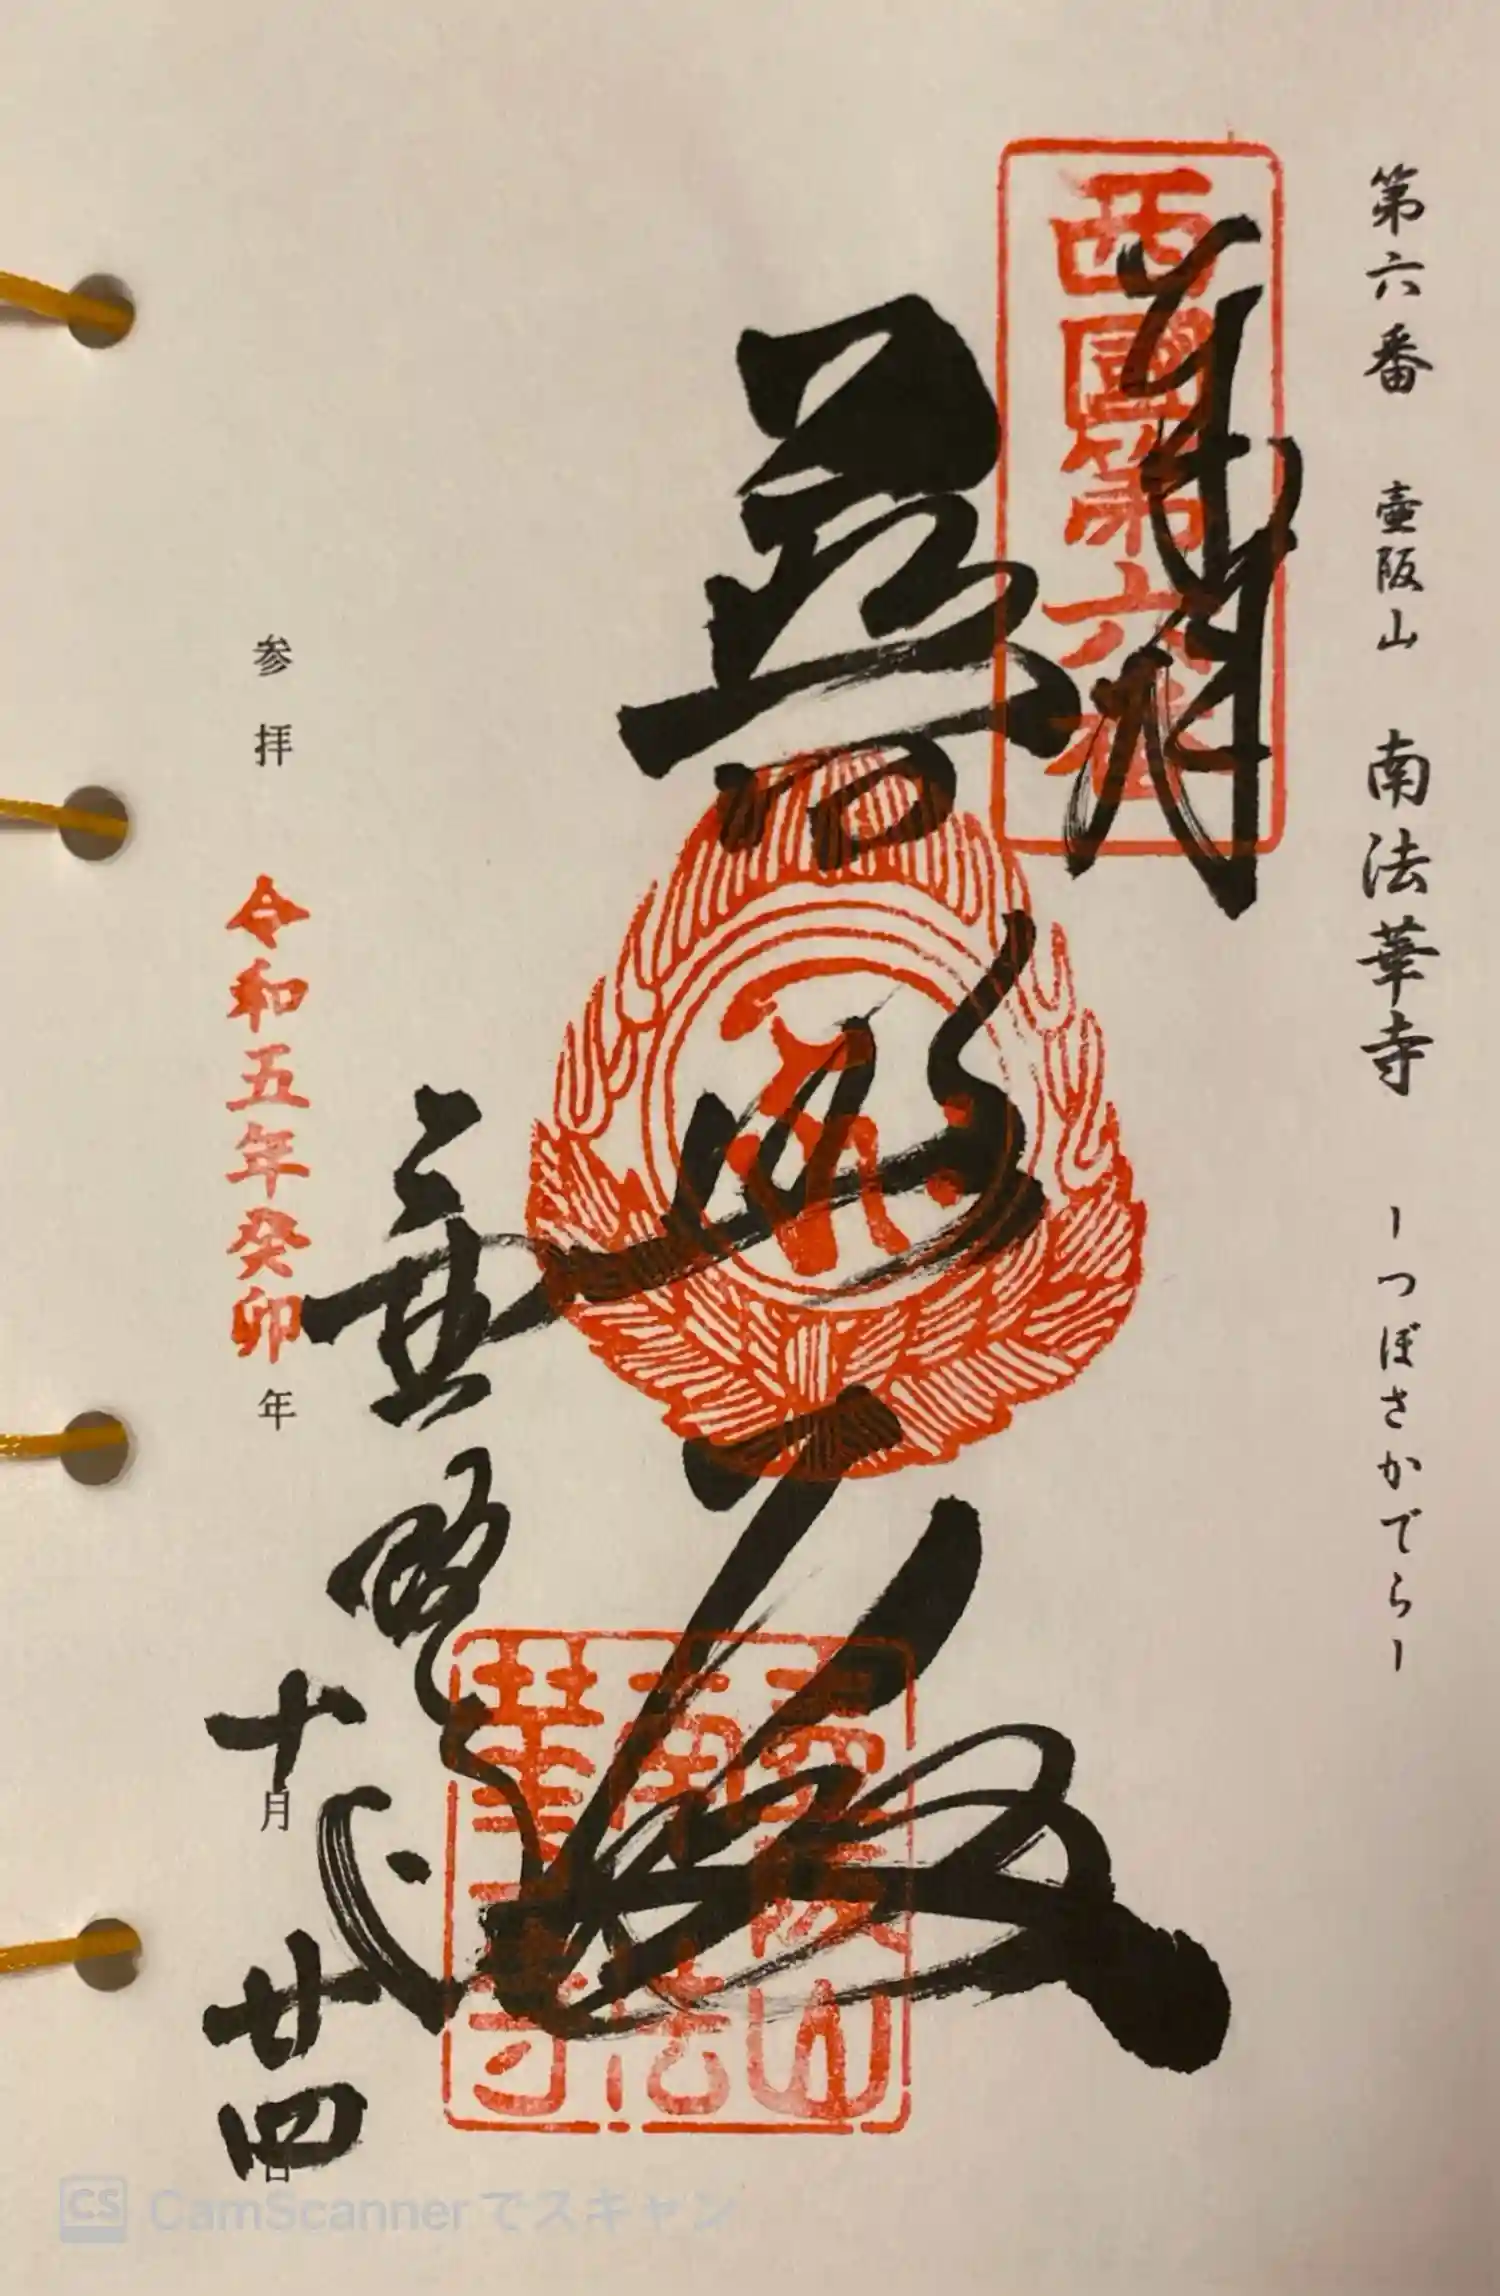 第六番 壷阪山 南法華寺 ーつぼさかでらー
奉拝
西國第六番
普照殿
壷阪山
南法
華寺
参拝 令和五年癸卯年 十月廿四日
CS CamScannerでスキャン